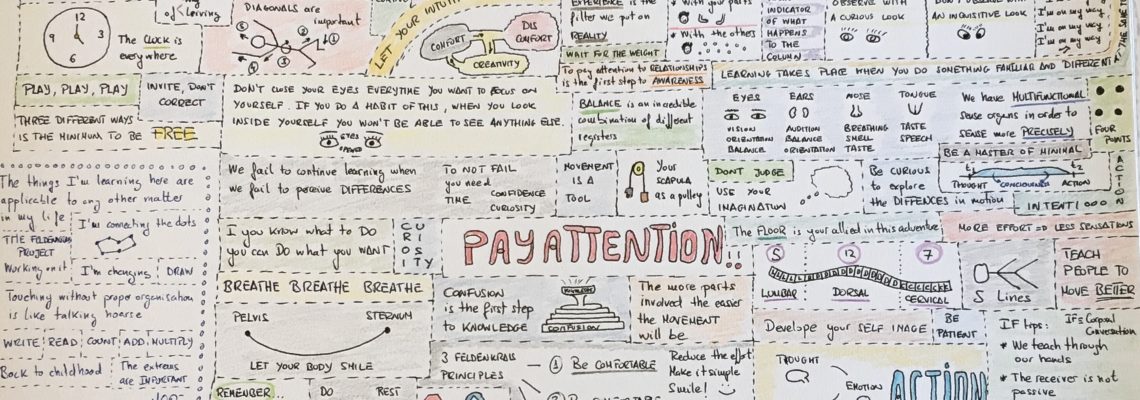 12
9
3
6
The CLOCK is
everywhere
of Living
DIAGONALS are
important
LET YOUR INTUITI
COMFORT
DIS
COMFORT
CREATIVITY
EXPERIENCE is the
filter we put on
REALITY
WAIT FOR THE WEIGHT
* With your parts
* With the others
INDICATOR
OF WHAT
HAPPENS
TO THE
COLUMN
OBSERVE WITH
A CURIOUS LOOK
AN INQUISITIVE LOOK
I'm on my way
I'm on my way
I'm on my way
PLAY, PLAY, PLAY
INVITE, DON'T
CORRECT
THREE DIFFERENT WAYS
IS THE MINIMUM TO BE FREE
DON'T CLOSE YOUR EYES EVERYTIME YOU WANT TO FOCUS ON
YOURSELF. IF YOU DO A HABIT OF THIS, WHEN YOU LOOK
INSIDE YOURSELF YOU WON'T BE ABLE TO SEE ANYTHING ELSE.
EYES
OPENED
To pay attention to RELATIONSHIPS
is the first step to AWARENESS
BALANCE is an incredible
combination of different
registers
LEARNING TAKES PLACE WHEN YOU DO SOMETHING FAMILIAR AND DIFFERENT
EYES
VISION
ORIENTATION
BALANCE
EARS
AUDITION
BALANCE
ORIENTATION
NOSE
BREATHING
SMELL
TASTE
TONGUE
TASTE
SPEECH
We have MULTIFUNCTIONAL
sense organs in order to
sense more PRECISELY
FOUR
POINTS
BE A MASTER OF MINIMAL
t1
t2
THOUGHT
CONSCIOUSNESS
ACTION
ACTION
The things I'm learning here are
applicable to any other matter
in my life
I'm connecting the dots
THE FELDENKRAIS
PROJECT
Working on it
I'm changing
DRAW
Touching without prope organisation
is like talking hoarse
WRITE READ COUNT ADD MULTIPLY
Back to childhood
The extrems
are IMPORTANT
We fail to continue learning when
we fail to perceive DIFFERENCES
TO NOT FAIL
you need
TIME
CONFIDENCE
CURIOSITY
MOVEMENT
IS A
TOOL
Your
SCAPULA
as a pulley
DONT JUDGE
USE YOUR
IMAGINATION
Be CURIOUS
to explore
the DIFFENCES in motion
INTENTIOOOON
If you know what to DO
you can DO what you WANT
CURIOSITY
PAY ATTENTION!!
The FLOOR is your allied in this adventure
MORE EFFORT = LESS SENSATIONS
BREATHE BREATHE BREATHE
PELVIS
STERNUM
LET YOUR BODY SMILE
CONFUSION
is the first step
to KNOWLEDGE
CONFUSION
The more parts
involved the easier
the MOVEMENT
will be
5
12
7
LUMBAR
DORSAL
CERVICAL
5 Lines
TEACH
PEOPLE TO
MOVE BETTER
Develope your SELF IMAGE
BE
PATIENT
IF tips:
IF is Corporal
Conversation
* We teach through
our hands
* The receiver is not
passive
3 FELDENKRAIS
PRINCIPLES
1 BE COMFORTABLE
Reduce the effort
Make it simple
Smile!
THOUGHT
EMOTION
ACTION
REMEMBER
DO
REST